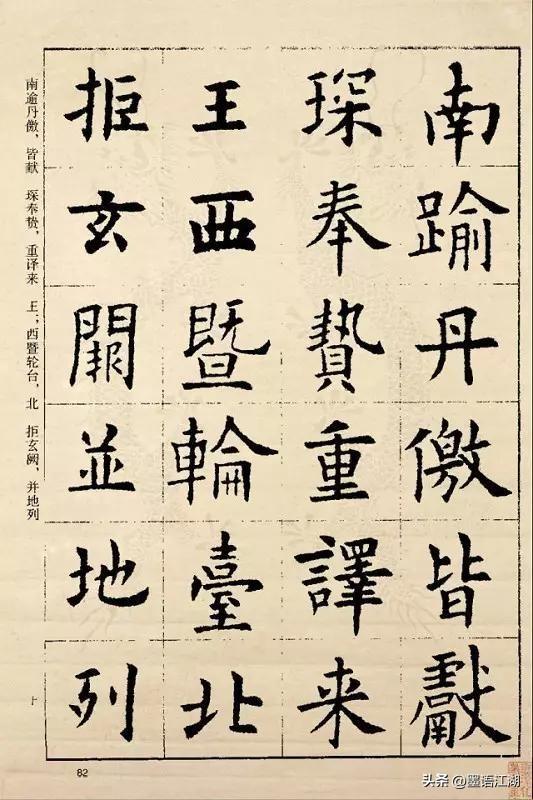 南踰丹儌皆獻
琛奉贄重譯来
王西暨輪臺北
拒玄闕並地列
南逾丹徼，皆献 琛奉贽，重译来 王；西暨轮台，北 拒玄阙，并地列
82
头条 @墨语江湖